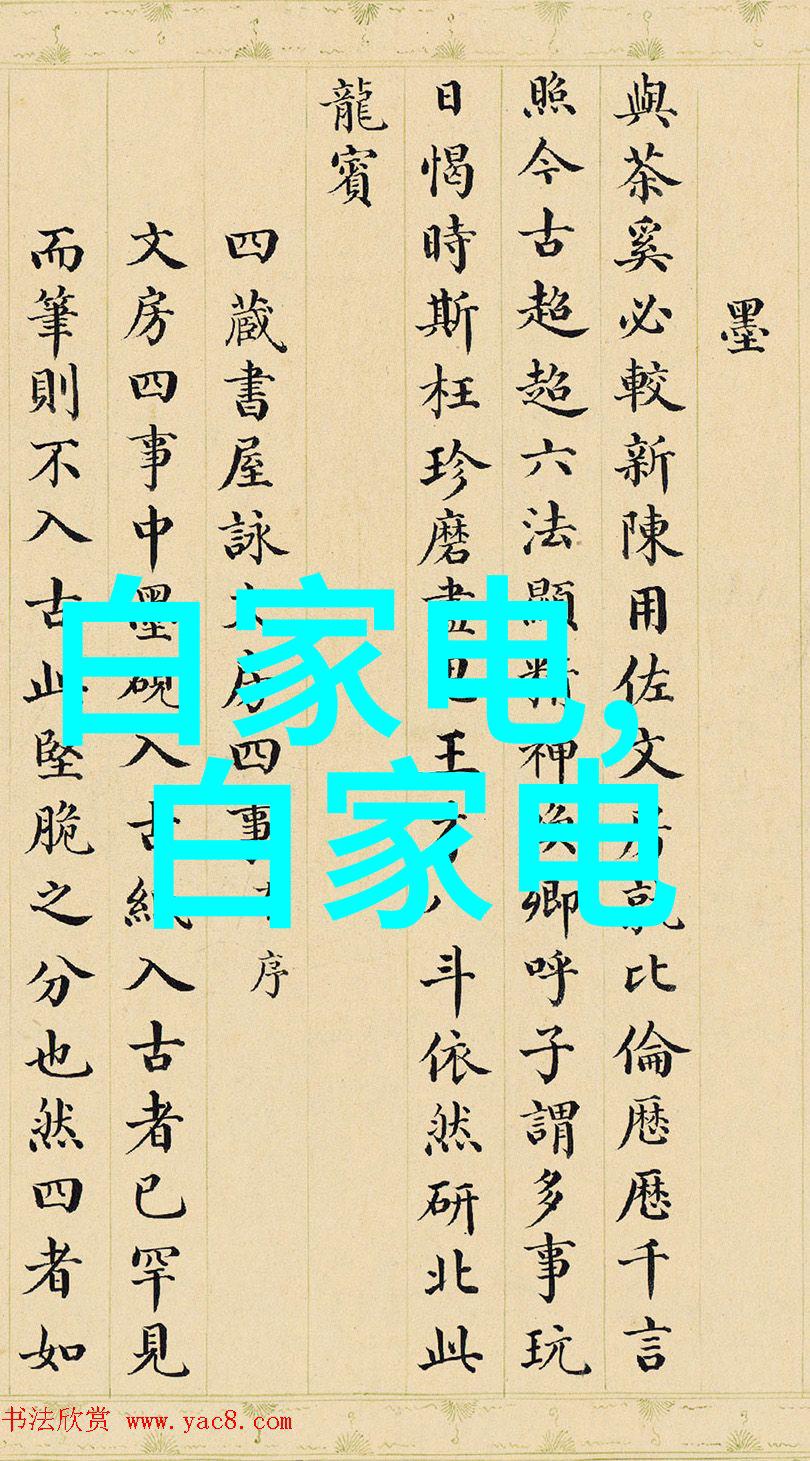 墨
與茶奚必較新陳用佐文房就比倫厯厯千言
照今古超超六法顯精神喚卿呼子謂多事玩
日愒時斯枉珍磨盡思王斗依然研北此
龍賓
四藏書屋詠文房四事序
文房四事中墨硯入古紙入古者已罕見
而筆則不入古此堅脆之分也然四者如
白家电,
白家电
书法欣赏 www.yac8.com